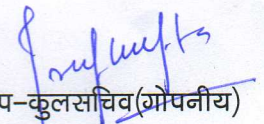 प-कुलसचिव(गोपनीय)